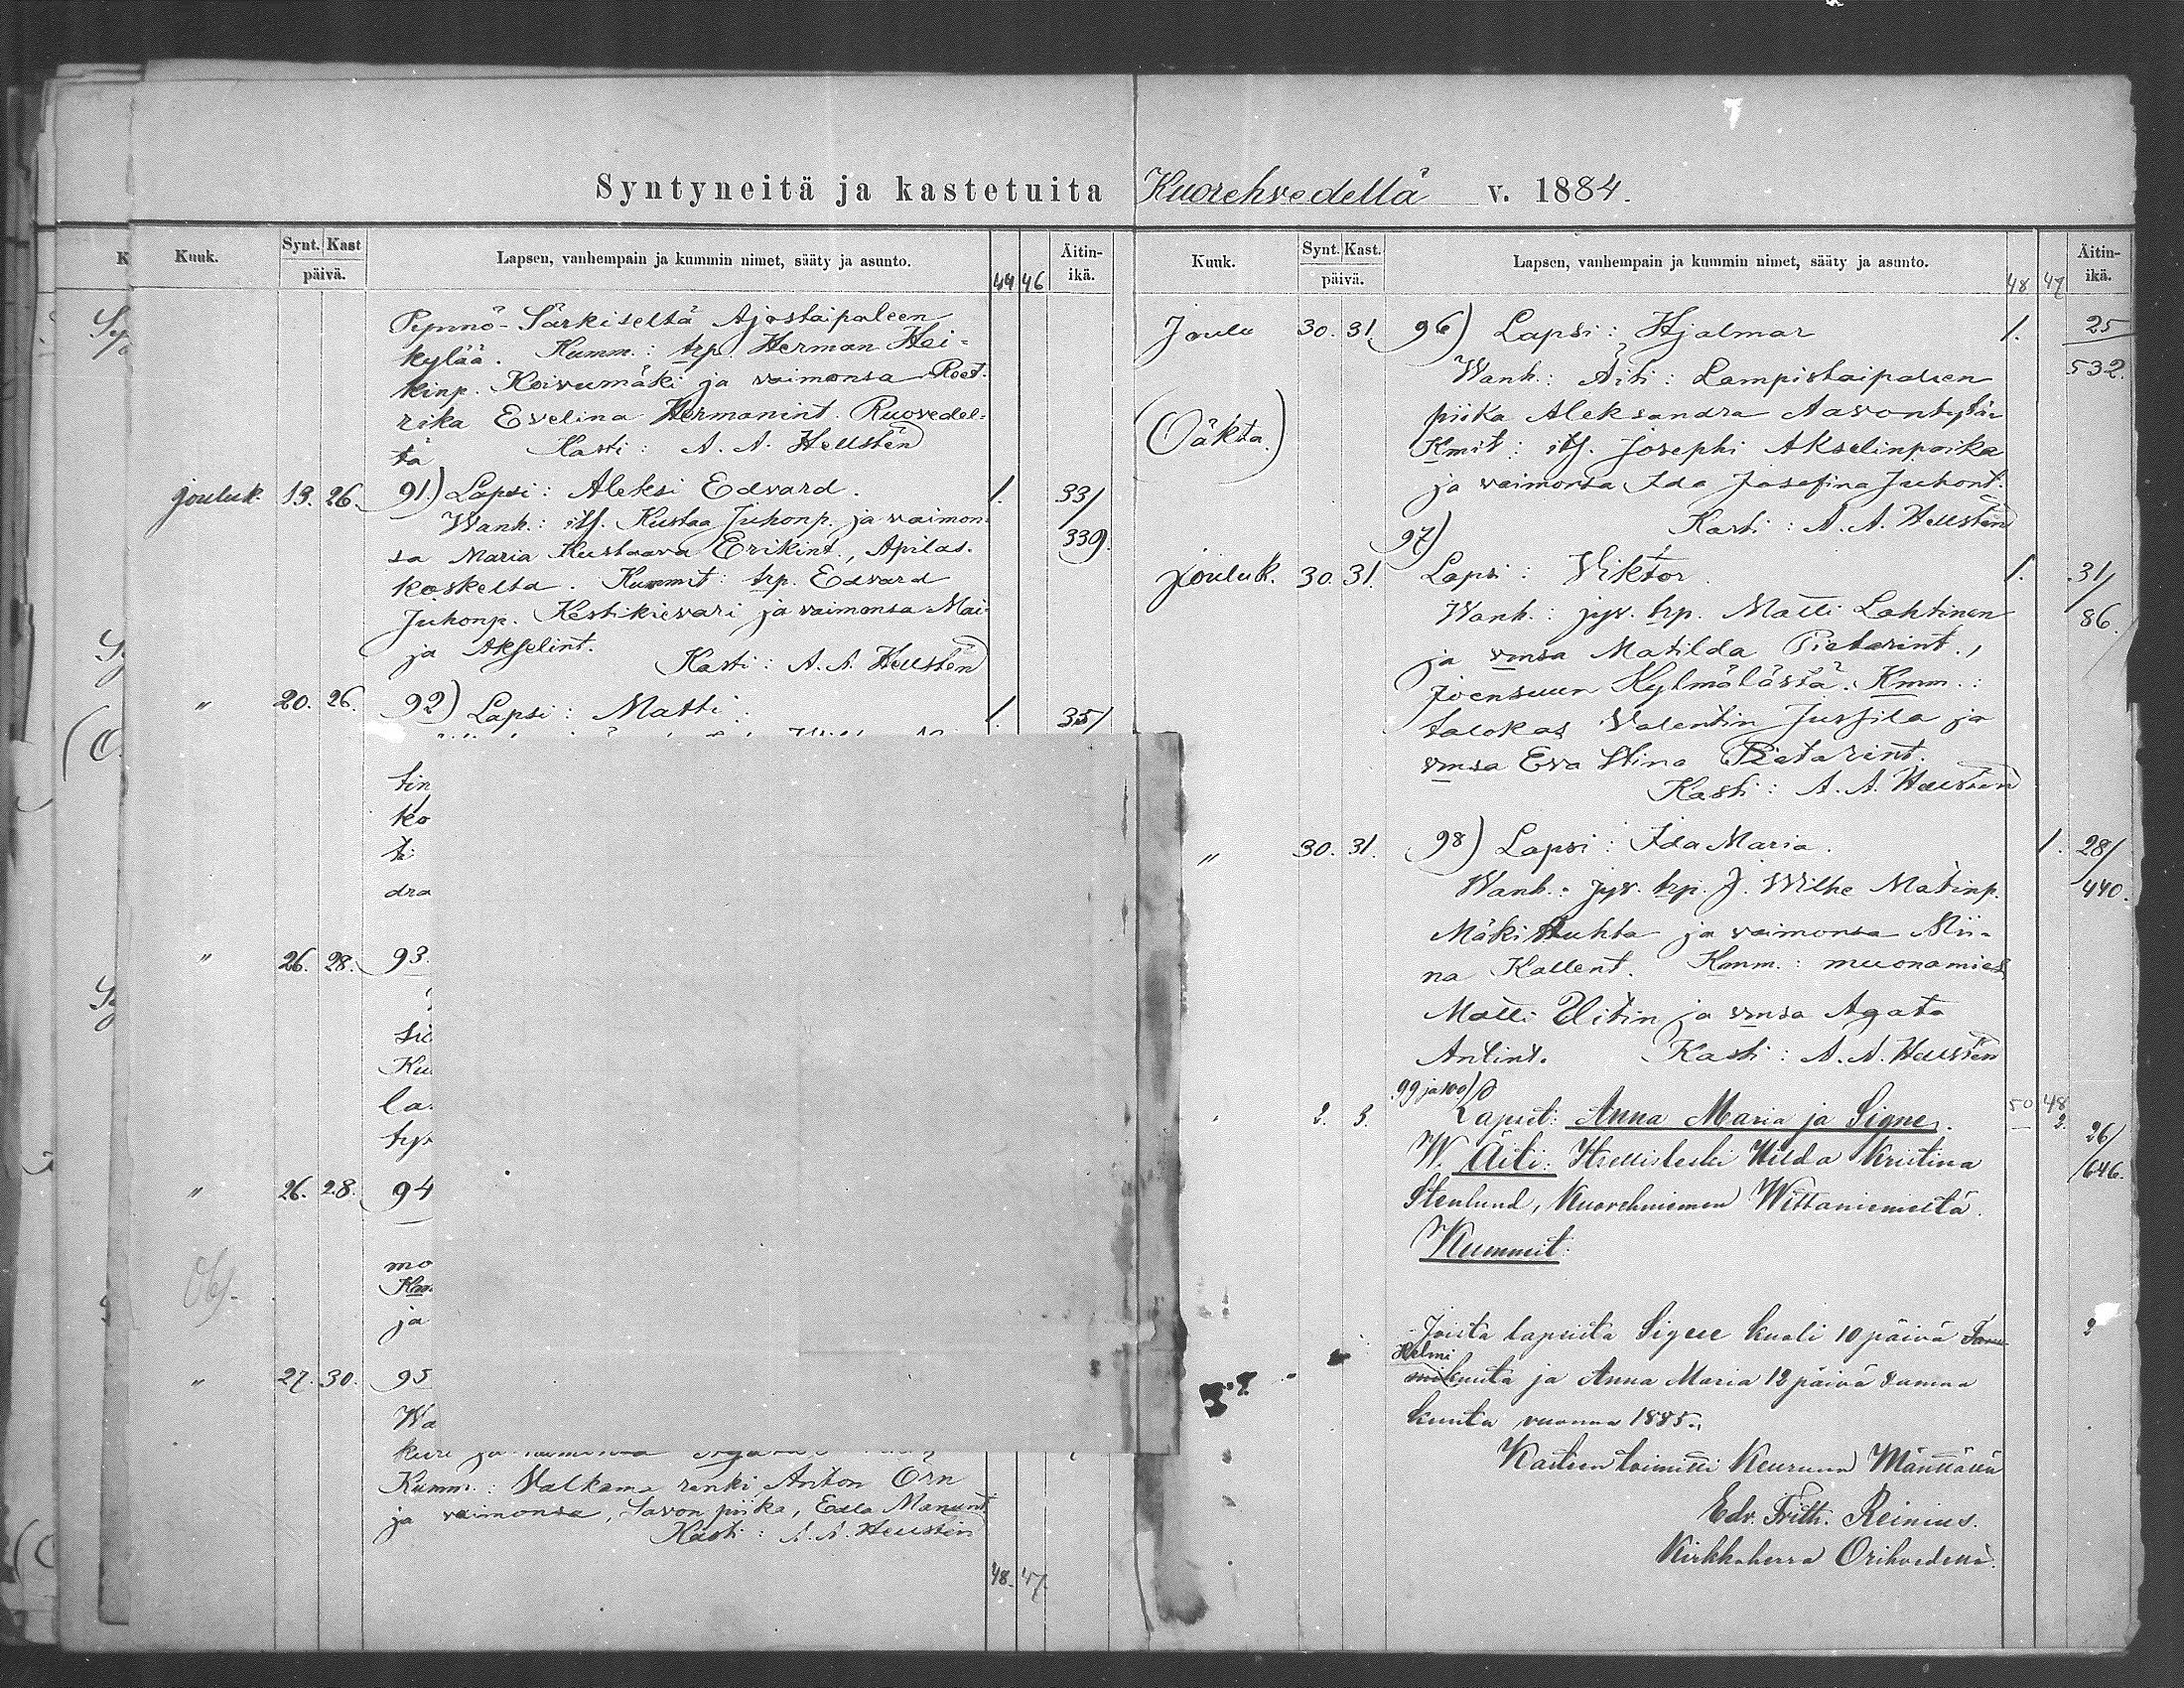 Syntyneitä ja kastetuita Kuorehvedellä v. 1884.
Kuuk. Synt. Kast päivä. Lapsen, vanhempain ja kummin nimet, sääty ja asunto. 44 46 Äitin-ikä.
Särkiseltä Ajostaipaleen
kylää. Kumm.: trp. Herman Hei-
kinp. Koivumäki ja vaimonsa
rika Evelina Hermanint. Ruovedel-
tä Kasti: A. A. Hellstén
jouluk. 13. 26. 91.) Lapsi: Aleksi Edvard. 1. 33/
Wanh.: itſ. Kustaa Juhonp. ja vaimon-
339.
sa Maria Kustaava Erikint., Apilas-
koskelta. Kummit: trp. Edvard
Juhonp. Kestikievari ja vaimonsa Mai-
ja Akſelint.
Kasti: A. A. Hellstén
" 20. 26. 92) Lapsi: Matti. 1. 35/
tin
ko
dra
" 26. 28. 93.
Ku
la
" 26. 28. 94
mo
ja
" 27. 30. 95
Wa
Kumm.: Valkama renki Anton Örn
ja vaimonsa, Savon piika, Edla Manunt.
Kasti: A. A. Hellstén
48. 47.
Kuuk. Synt. Kast. päivä. Lapsen, vanhempain ja kummin nimet, sääty ja asunto. 48 47 Äitin-ikä.
Joulu 30. 31. 96) Lapsi: Hjalmar 1. 25
532.
Wanh.: Äiti: Lampistaipaleen
piika Aleksandra Aavontytär
(Oäkta.)
Kmit: itſ. Josephi Akselinpoika
ja vaimonsa Ida Josefina Juhont.
Kasti: A. A. Hellstén
97)
jouluk. 30. 31. Lapsi: Viktor. 1. 31/
86.
Wanh.: jyv. trp. Matti Lahtinen
ja vmsa Matilda Pietarint.,
Joensuun Kylmälässä. Kmm.:
talokas Valentin Jussila ja
vmsa Eva Stina Pietarint.
Kasti: A. A. Hellstén
" 30. 31. 98) Lapsi: Ida Maria. 1. 28/
440.
Wanh.: jyv. trp. J. Wilhe Matinp.
Mäki Huhta ja vaimonsa Mii-
na Kallent. Kmm.: muonamies
Matti Uitin ja vmsa Agata
Antint. Kasti: A. A. Hellstén
99 ja 100)
2. 3. Lapset: Anna Maria ja Signe. 50 48 2. 26/
646.
W. Äiti: Itsellisleski Hilda Kristina
Stenlund, Kuorehniemen Wittaniemeltä.
Kummit:
Joista lapsista Signe kuoli 10 päivä Tam
Helmi
mikuuta ja Anna Maria 12 päivä samaa
kuuta vuonna 1885.
Kasteen toimitti Keuruun Mänttässä
Edv. Frith. Reinius.
Kirkkoherra Orihvedellä.